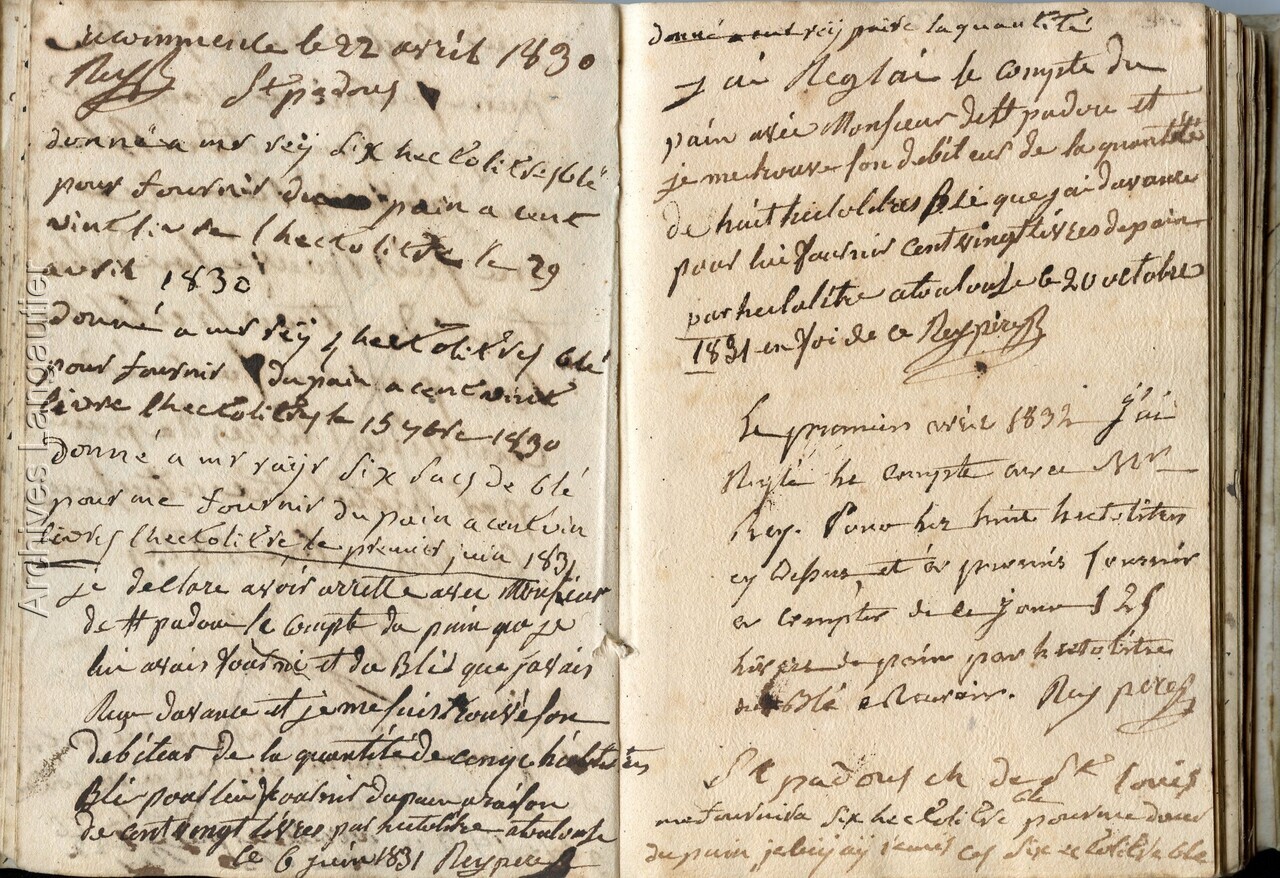 le 22 avril 1830
Rey St padous
donné a mr réy six hectolitres blé
pour fournir du pain a cent
vint livre l hectolitre le 29
avril 1830
donné a mr réy 4 hectolitres blé
pour fournir du pain a cent vint
livre lhectolitres le 15 9bre 1830
Donné a mr réys six sacs de blé
pour me fournir du pain a cent vin
livres lhectolitre le premier juin 1831
je declare avoir arretté avec Monsieur
de St padou le compte du pain que je
lui avais fourni et du Bled que javais
Reçu davance et je me suis trouvé son
debiteur de la quantité de hectolitres
Blé pour lui fournir du pain a raison
de cent vingt livres par hectolitre atoulouse
le 6 juin 1831 Rey pere
donné a réy paire la quantité
j ai Reglai le compte du
pain avec Monsieur de St padou et
je me trouve son debiteur de la quantité
de huit hectolitres Blé que jai davance
pour lui fournir cent vingt livres de pain
par hectolitre atoulouse le 20 octobre
1831 en foi de ce Rey pere
Le premier 1832 J'ai
Reglé le compte avec Mr
Rey. Pour les huit hectolitres
cy Dessus, et a promis fournir
a compter de ce jour 125
livres de pain par hectolitre
du Blé a Revoir. Rey pere
St padous ch de St Louis
me fournira six hectolitre blé pour me donner
du pain six ectolitre ble
Archives Lanqautier